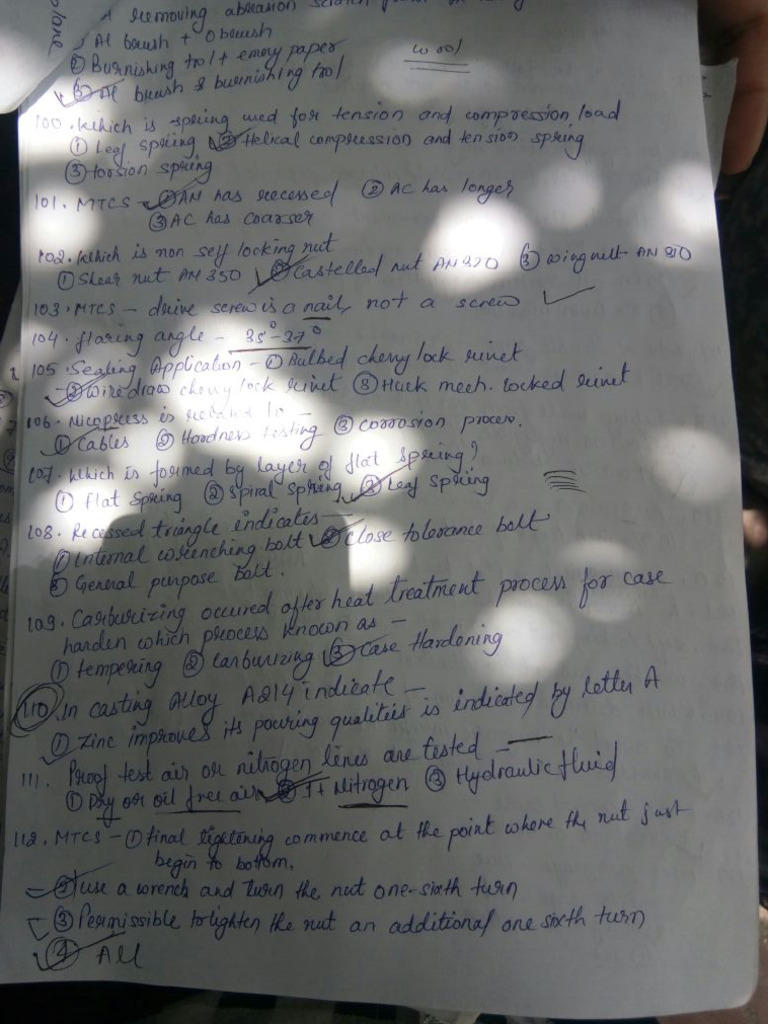 plane
removing abrasion scratch
① Al brush + Obrush
② Burnishing tool + emery paper
wool
③ Al brush & burnishing tool
100. Which is spring used for tension and compression load
① Leaf spring ② Helical compression and tension spring
③ torsion spring
101. MTCS - ① AN has recessed ② AC has longer
③ AC has coarser
102. Which is non self locking nut
① Shear nut AN 350 ② Castelled nut AN 320 ③ wing nut AN
103. MTCS - drive screw is a nail, not a screw
104. flaring angle - 35°-37°
105. Sealing Application - ① Bulbed cherry lock rivet
② Wiredraw cherry lock rivet ③ Huck mech. locked rivet
106. Nicopress is related to -
① Cables ② Hardness testing ③ corrosion process.
107. Which is formed by layer of flat spring?
① flat spring ② spiral spring ③ Leaf spring
108. Recessed triangle indicates -
① Internal wrenching bolt ② Close tolerance bolt
③ General purpose bolt.
109. Carburizing occured after heat treatment process for case
harden which process known as -
① tempering ② Carburizing ③ Case Hardening
110. In casting Alloy A214 indicate -
① Zinc improves its pouring qualities is indicated by letter A
111. Proof test air or nitrogen lines are tested -
① Dry or oil free air ② 1 + Nitrogen ③ Hydraulic fluid
112. MTCS - ① final tightening commence at the point where the nut just
begin to bottom.
② use a wrench and turn the nut one-sixth turn
③ Permissible to tighten the nut an additional one sixth turn
④ All